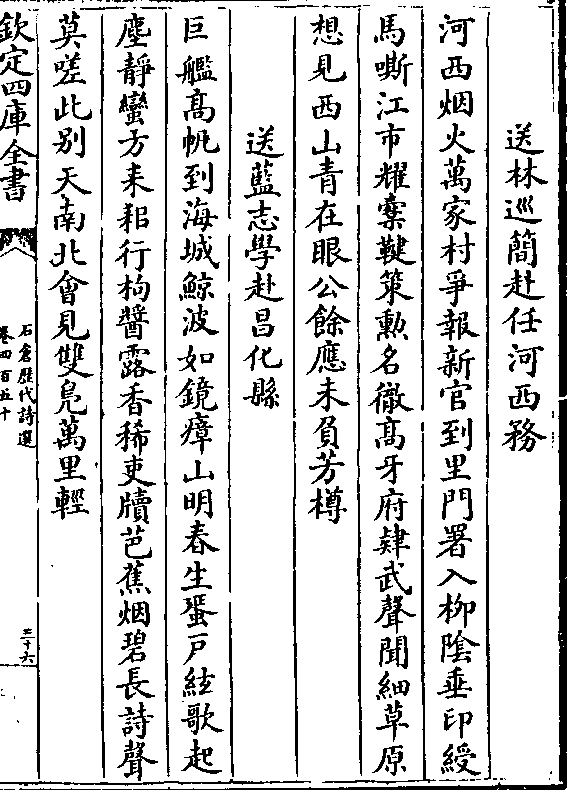 送林巡簡赴任河西務
河西烟火萬家村爭報新官到里門署入柳陰垂印綬
馬嘶江市耀櫜鞬策勲名徹髙牙府肄武聲聞細草原
想見西山青在眼公餘應未負芳樽
送藍志學赴昌化縣
巨艦髙帆到海城鯨波如鏡瘴山明春生蜑戸絃歌起
塵靜蠻方耒耜行枸醬露香稀吏牘芭蕉烟碧長詩聲
莫嗟此别天南北會見雙鳬萬里輕
欽定四庫全書
石倉歴代詩選
卷四百五十
三十六